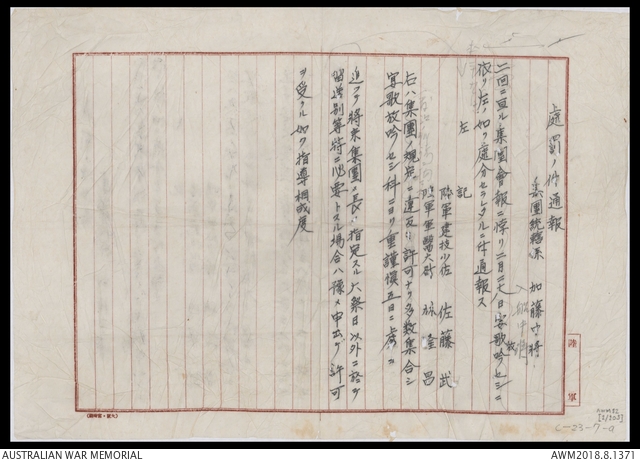 處罰ノ件通報
集團総務係 加藤中将
二回ニ亘ル集團會報ニ悖リ二月二十八日宴歌放吟セシニ
依リ左ノ如ク處分セラレタルニ付通報ス
左 記
陸軍建技少佐 佐藤武
陸軍軍醫大尉 旅隆昌
右ハ集團ノ規定ニ違反シ許可ナク多数集合シ
宴歌放吟セシ科ニヨリ重謹慎五日ニ處ス
追テ将来集團ノ長ノ指定スル六祭日以外ニ於テ
留送別等特ニ必要トスル場合ハ豫メ申出デ許可
ヲ受クル如ク指導相成度
陸軍
AWM82
[2/203]
C-23-7-9
AUSTRALIAN WAR MEMORIAL
AWM2018.8.1371